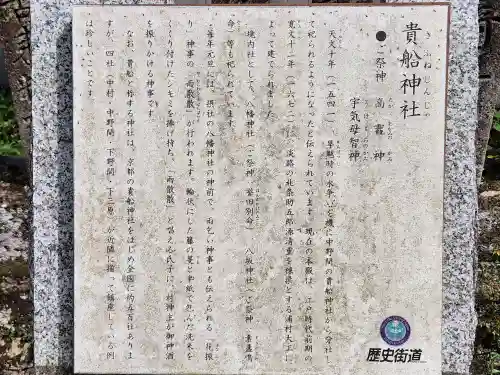 きふねじんじゃ
貴船神社
●ご祭神 高龗神
宇気母智神
天文十年(一五四一)、旱魃時の水争いを機に中野間の貴船神社から分社し
て祀られるようになったと伝えられています。現在の本殿は、江戸時代前期の
寛文十二年(一六七二)に、淡路の社柴助五郎源清重を棟梁とする浦村大工に
よって建てられました。
境内社として、八幡神社(ご祭神 誉田別命)、八坂神社(ご祭神 素盞嗚
命)等も祀られています。
毎年元旦には、摂社の八幡神社の神前で、雨乞い神事とも伝えられる「花振
り神事の「雨散散」が行われます。輪状にした藤の蔓と和紙で包んだ洗米を
くくり付けたシキミを捧げ持ち、「雨散散」と唱える氏子に、村神主が御神酒
を振りかける神事です。
なお、貴船と称する神社は、京都の貴船神社をはじめ全国に約五百社ありま
すが、四社(中村・中野間・下野間・十三原)が近隣に揃って鎮座している例
は珍しいことです。
歴史街道